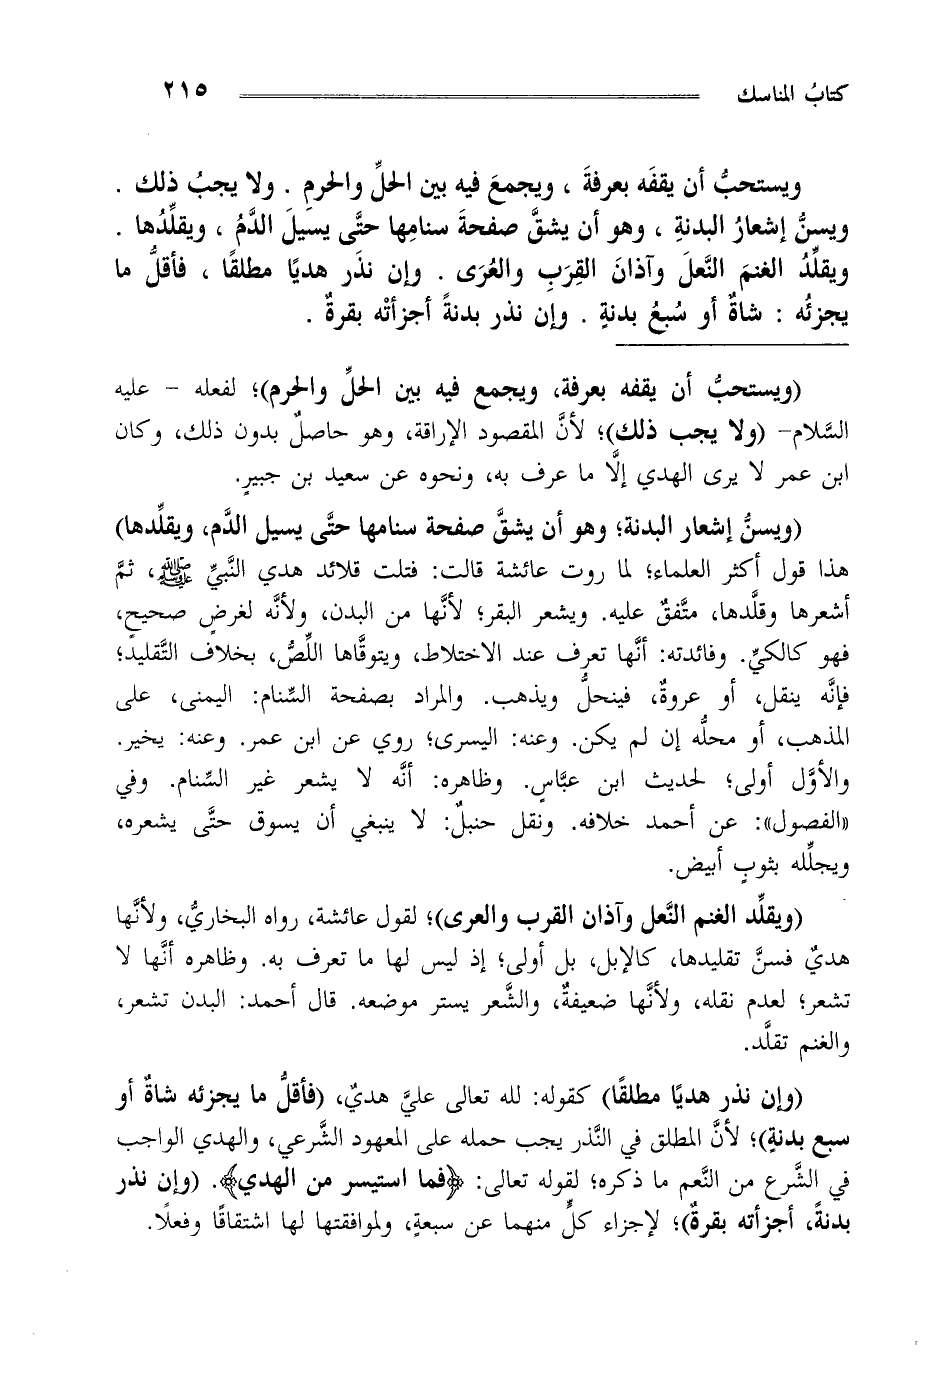 كتابُ المناسك ٢١٥
ويستحبُّ أن يقفَه بعرفةَ ، ويجمعَ فيه بين الحلِّ والحرمِ . ولا يجبُ ذلك .
ويسنُّ إشعارُ البدنةِ ، وهو أن يشقَّ صفحةَ سنامِها حتَّى يسيلَ الدَّمُ ، ويقلِّدُها .
ويقلِّدُ الغنمَ النَّعلَ وآذانَ القِرَبِ والعُرَى . وإن نذَر هديًا مطلقًا ، فأقلُّ ما
يجزئُه : شاةٌ أو سُبعُ بدنةٍ . وإن نذر بدنةً أجزأتْه بقرةٌ .
(ويستحبُّ أن يقفه بعرفة، ويجمع فيه بين الحلِّ والحرم)؛ لفعله - عليه
السَّلام- (ولا يجب ذلك)؛ لأنَّ المقصود الإراقة، وهو حاصلٌ بدون ذلك، وكان
ابن عمر لا يرى الهدي إلَّا ما عرف به، ونحوه عن سعيد بن جبيرٍ.
(ويسنُّ إشعار البدنة؛ وهو أن يشقَّ صفحة سنامها حتَّى يسيل الدَّم، ويقلِّدها)
هذا قول أكثر العلماء؛ لما روت عائشة قالت: فتلت قلائد هدي النَّبيِّ ﷺ، ثمَّ
أشعرها وقلَّدها، متَّفقٌ عليه. ويشعر البقر؛ لأنَّها من البدن، ولأنَّه لغرضٍ صحيحٍ،
فهو كالكيِّ. وفائدته: أنَّها تعرف عند الاختلاط، ويتوقَّاها اللِّصُّ، بخلاف التَّقليد؛
فإنَّه ينقل، أو عروةٌ، فينحلُّ ويذهب. والمراد بصفحة السِّنام: اليمنى، على
المذهب، أو محلُّه إن لم يكن. وعنه: اليسرى؛ روي عن ابن عمر. وعنه: يخير.
والأوَّل أولى؛ لحديث ابن عبَّاسٍ. وظاهره: أنَّه لا يشعر غير السِّنام. وفي
«الفصول»: عن أحمد خلافه. ونقل حنبلٌ: لا ينبغي أن يسوق حتَّى يشعره،
ويجلِّله بثوبٍ أبيض.
(ويقلِّد الغنم النَّعل وآذان القرب والعرى)؛ لقول عائشة، رواه البخاريُّ، ولأنَّها
هديٌ فسنَّ تقليدها، كالإبل، بل أولى؛ إذ ليس لها ما تعرف به. وظاهره أنَّها لا
تشعر؛ لعدم نقله، ولأنَّها ضعيفةٌ، والشَّعر يستر موضعه. قال أحمد: البدن تشعر،
والغنم تقلَّد.
(وإن نذر هديًا مطلقًا) كقوله: لله تعالى عليَّ هديٌ، (فأقلُّ ما يجزئه شاةٌ أو
سبع بدنةٍ)؛ لأنَّ المطلق في النَّذر يجب حمله على المعهود الشَّرعي، والهدي الواجب
في الشَّرع من النَّعم ما ذكره؛ لقوله تعالى: ﴿فما استيسر من الهدي﴾. (وإن نذر
بدنةً، أجزأته بقرةٌ)؛ لإجزاء كلٍّ منهما عن سبعةٍ، ولموافقتها لها اشتقاقًا وفعلًا.